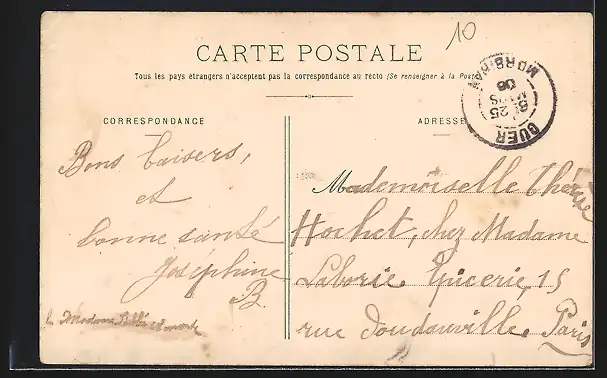 10
CARTE POSTALE
Tous les pays étrangers n'acceptent pas la correspondance au recto (Se renseigner à la Poste)
MORBIHAN
25
MARS
06
GUER
CORRESPONDANCE
ADRESSE
Bons baisers,
et
bonne santé
Joséphine
B
Madame
Mademoiselle Thérèse
Hochet, chez Madame
Laborie Epicerie, 15
rue Doudauville. Paris